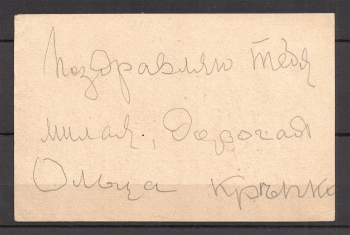 Поздравляю тебя
милая, дорогая
Ольца крѣпко